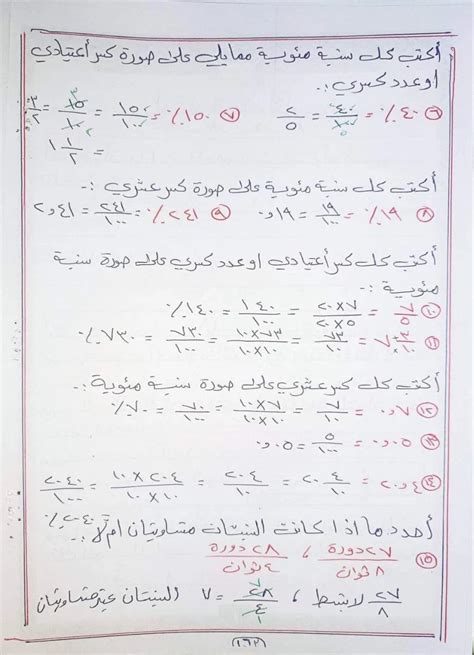 أكتب كل نسبة مئوية ممايلي على صورة كسر أعتيادي
أو عدد كسري :.
٦ ٤٠٪ = ٤٠/١٠٠ = ٢/٥ ٧ ١٥٠٪ = ١٥٠/١٠٠ = ١٥/١٠ = ٣/٢
= ١ ١/٢
أكتب كل نسبة مئوية على صورة كسر عشري :.
٨ ١٩٪ = ١٩/١٠٠ = ١٩و٠ ٩ ٢٤١٪ = ٢٤١/١٠٠ = ٤١و٢
أكتب كل كسر أعتيادي او عدد كسري على صورة نسبة
مئوية :.
١٠ ٧/٥ = ٢٠×٧/٢٠×٥ = ١٤٠/١٠٠ = ١٤٠٪
١١ ٧ ٣/١٠ = ٧٣/١٠ = ١٠×٧٣/١٠×١٠ = ٧٣٠/١٠٠ = ٧٣٠٪
أكتب كل كسر عشري على صورة نسبة مئوية :.
١٢ ٧و٠ = ٧/١٠ = ١٠×٧/١٠×١٠ = ٧٠/١٠٠ = ٧٠٪
١٣ ٠٥و٠ = ٥/١٠٠ = ٠٥و٠
١٤ ٤و٢٠ = ٢٠ ٤/١٠ = ٢٠٤/١٠ = ١٠×٢٠٤/١٠×١٠ = ٢٠٤٠/١٠٠
= ٢٠٤٠٪
أحدد ما اذا كانت النسبتان متساويتان ام لا :.
١٥ ٢٧ دورة/٨ ثوان ، ٢٨ دورة/٤ ثوان
٢٧/٨ لا تبسط ، ٢٨/٤ = ٧ النسبتان غير متساويتان
(١٦٢)